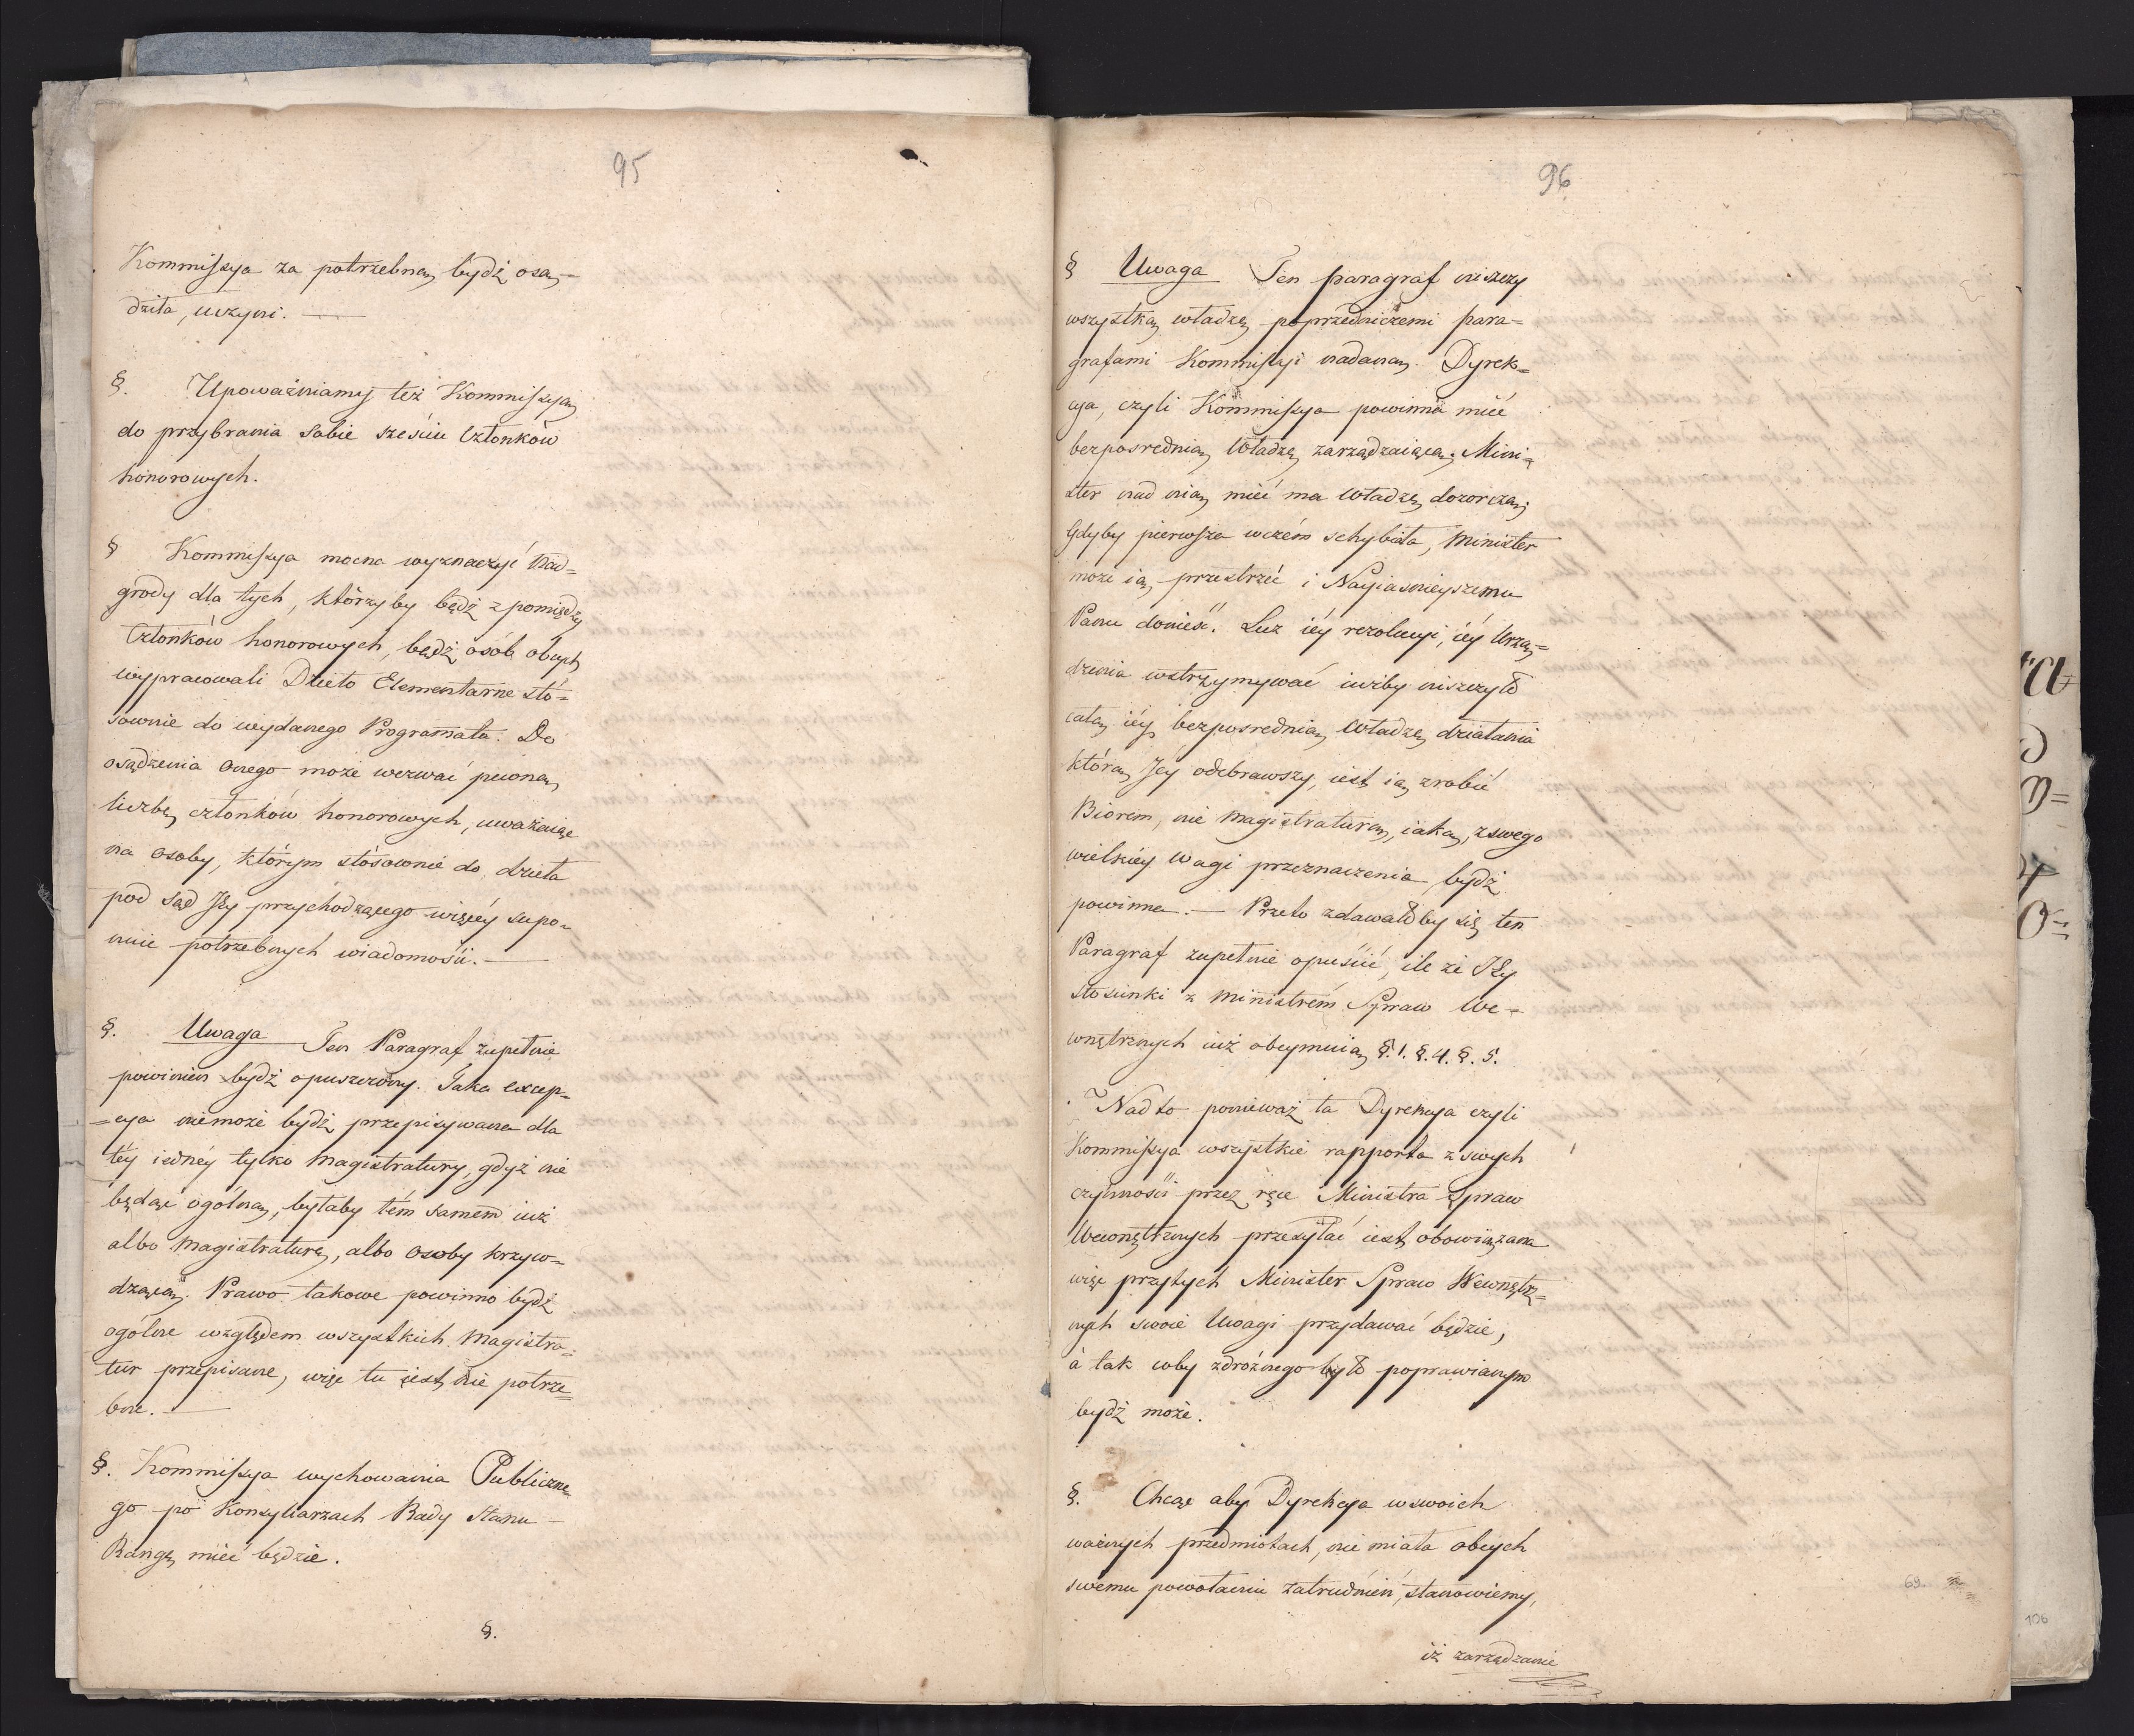 95
Kommissya za potrzebną bydź osą=
dziła, uczyni. —
§. Upoważniamy też Kommissyą
do przybrania sobie sześciu Członków
honorowych.
§ Kommissya mocna wyznaczyć Nad=
grody dla tych, którzyby bądź z pomiędzy
Członków honorowych, bądź osób obcych
wypracowali Dzieło Elementarne sto=
sownie do wydanego Programmata. Do
osądzenia onego może wezwać pewną
liczbę członków honorowych, uważając
na osoby, którym stósownie do dzieła
pod sąd Jéy przychodzącego więcéy supo=
nuie potrzebnych wiadomości. —
§. Uwaga Ten Paragraf zupełnie
powinien bydź opuszczony. Taka excep=
=cya niemoże bydź przepisywana dla
téy iednéy tylko Magistratury, gdyż nie
będąc ogólną, byłaby tém samém iuż
albo Magistraturę, albo osoby krzyw=
dzącą. Prawo takowe powinno bydź
ogólne względem wszystkich Magistra=
tur przepisane, więc tu iest nie potrze=
bne. —
§. Kommissya wychowania Publiczne
go po Konsyliarzach Rady Stanu
Rangę mieć będzie.
§.
96
§ Uwaga Ten paragraf niszczy
wszystką władzę poprzedniczemi para=
grafami Kommissyi nadaną. Dyrek=
cya, czyli Kommissya powinna mieć
bezposrednią Władzę zarządzaiącą; Mini=
ster nad nią mieć ma Władzę dozorczą;
Gdyby pierwsza wczém schybiła, Minister
może ią przestrzéc i Nayiasnieyszemu
Panu donieść. Lecz iéy rezolucyi, iéy Urzą=
dzenia wstrzymywać iużby niszczyło
całą iéy bezposrednią Władzę działania
którą Jey odebrawszy, iest ią zrobić
Biorem, nie Magistraturą, iaką, zswego
wielkiéy wagi przeznaczenia bydź
powinna. — Przeto zdawałoby się ten
Paragraf zupełnie opuścić, ile że Jéy
stosunki z Ministrem Spraw We=
wnętrznych iuż obeymuią §. 1. §. 4. §. 5.
Nadto ponieważ ta Dyrekcya czyli
Kommissya wszystkie rapporta z swych
czynności przez ręce Ministra Spraw
Wewnętrznych przesyłać iest obowiązana
więc przytych Minister Spraw Wewnętrz=
nych swoie Uwagi przydawać będzie,
à tak coby zdróżnego było poprawianym
bydź może.
§. Chcąc aby Dyrekcya wswoich
ważnych przedmiotach, nie miała obcych
swemu powołaniu zatrudnień, stanowiemy,
iż zarządzanie
69.
106